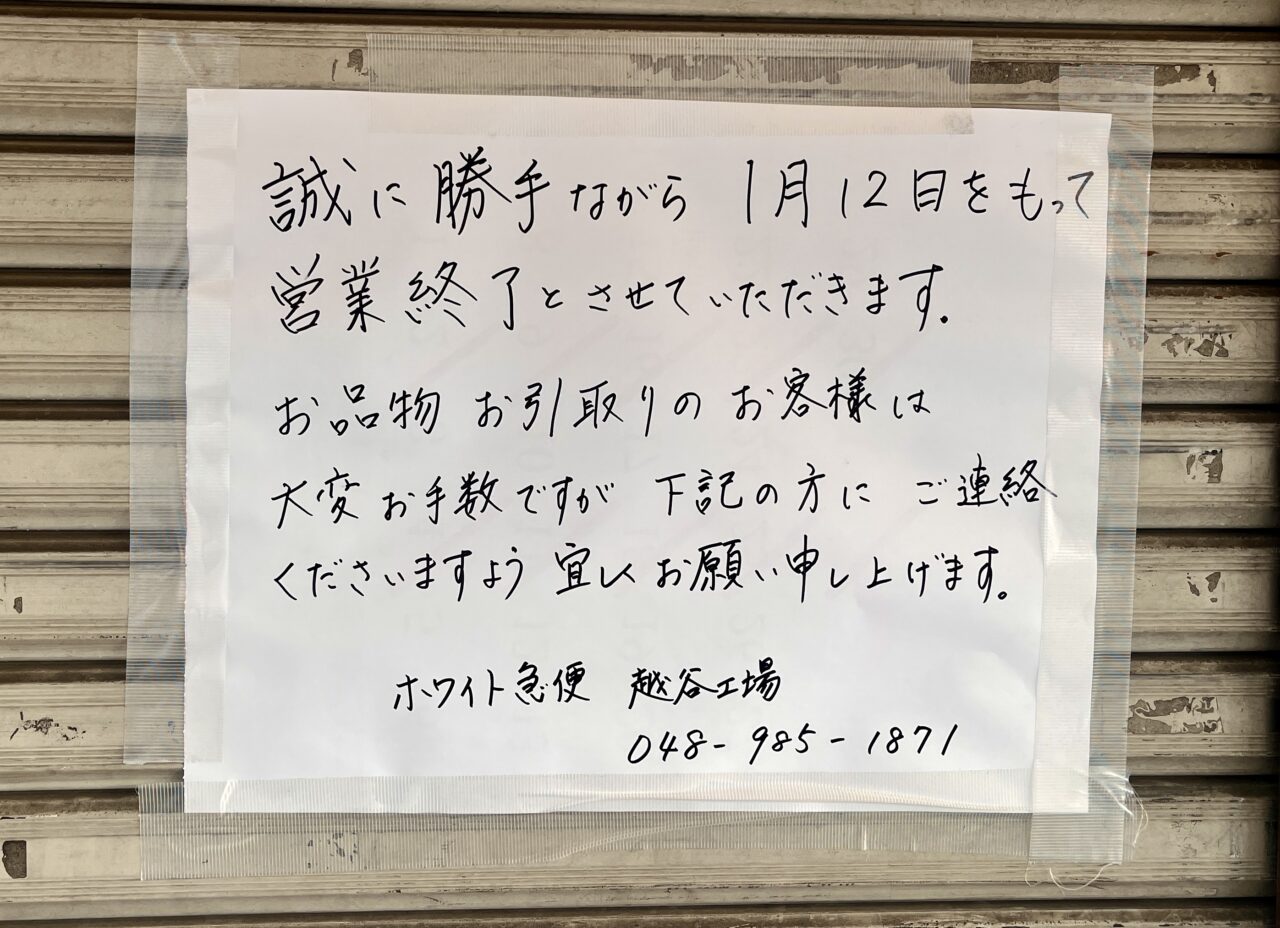 誠に勝手ながら 1月12日をもって
営業終了とさせていただきます.
お品物 お引取りの お客様は
大変お手数ですが 下記の方に ご連絡
くださいますよう 宜しくお願い申し上げます。
ホワイト急便 越谷工場
048-985-1871